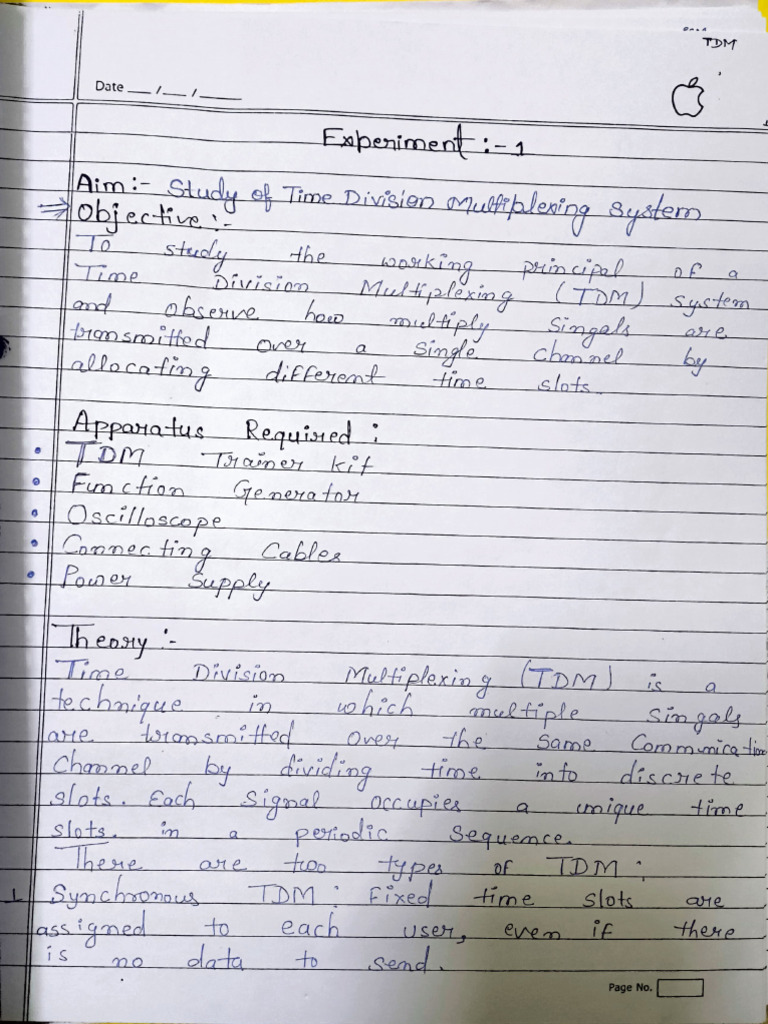 TDM
Date __/__/____
Experiment :- 1
Aim :- Study of Time Division Multiplexing System
Objective :-
To study the working principal of a
Time Division Multiplexing (TDM) System
and observe how multiply Singals are
transmitted over a Single Channel by
allocating different time slots.
Apparatus Required :
• TDM Trainer Kit
• Function Generator
• Oscilloscope
• Connecting Cables
• Power Supply
Theory :-
Time Division Multiplexing (TDM) is a
technique in which multiple Singals
are transmitted over the same Communication
Channel by dividing time into discrete
slots. Each Signal occupies a unique time
slots. in a periodic Sequence.
There are two types of TDM :
1 Synchronous TDM : Fixed time slots are
assigned to each user, even if there
is no data to send.
Page No.